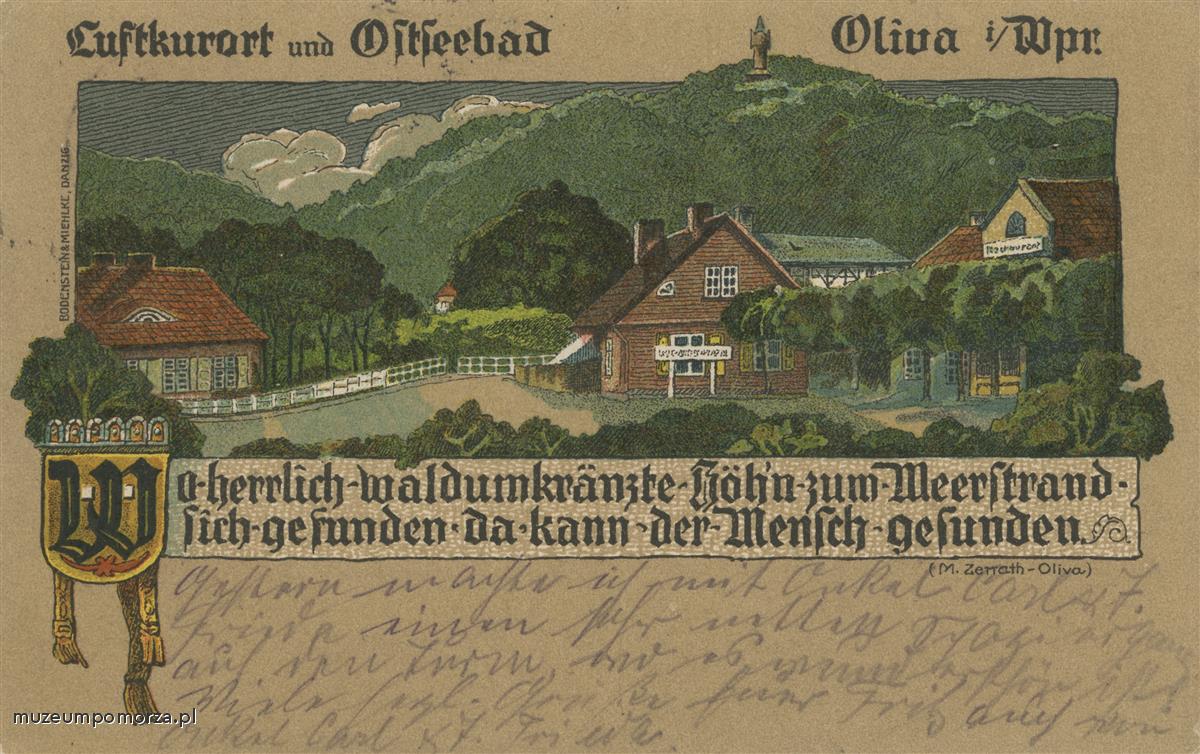 Luftkurort und Ostseebad Oliva i/Wpr.
BODENSTEIN & MIEHLKE, DANZIG.
Restaurant
Wo-herrlich-waldumkränzte-Höh'n-zum-Meerstrand-
sich-gefunden·da-kann-der-Mensch-gesunden.
(M. Zerrath-Oliva)
Gestern machte ich mit Onkel Carl u. T.
Frieda einen sehr netten
auf den Turm, wo es
Viele
Onkel Carl u. T. Frieda.
muzeumpomorza.pl